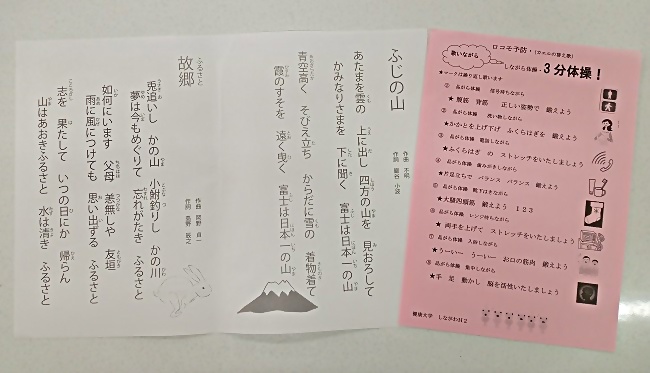 ふじの山
作曲 不明
作詞 巌谷 小波
あたまを雲の 上に出し 四方の山を 見おろして
かみなりさまを 下に聞く 富士は日本一の山
青空高く そびえ立ち からだに雪の 着物着て
霞のすそを 遠く曳く 富士は日本一の山
ふるさと
故郷
作曲 岡野 貞一
作詞 高野 辰之
兎追いし かの山 小鮒釣りし かの川
夢は今もめぐりて 忘れがたき ふるさと
如何にいます 父母 恙無しや 友垣
雨に風につけても 思い出ずる ふるさと
志を 果たして いつの日にか 帰らん
山はあおきふるさと 水は清き ふるさと
ロコモ予防・(カエルの替え歌)
歌いながら
しながら体操・3分体操!
★マークは繰り返し歌います
① 品がら体操 信号待ちながら
★ 腹筋 背筋 正しい姿勢で 鍛えよう
② 品がら体操 洗い物しながら
★かかとを上げ下げ ふくらはぎを 鍛えよう
③ 品がら体操 電話しながら
★ふくらはぎ の ストレッチをいたしましょう
④ 品がら体操 歯みがきしながら
★片足立ちで バランス バランス 鍛えよう
⑤ 品がら体操 靴下はきながら
★大腿四頭筋 鍛えよう 1 2 3
⑥ 品がら体操 レンジ待ちながら
★ 両手を上げて ストレッチをいたしましょう
⑦ 品がら体操 入浴しながら
★うーいー うーいー お口の筋肉 鍛えよう
⑧ 品がら体操 集中しながら
★手 足 動かし 脳を活性いたしましょう
健康大学 しながわH2